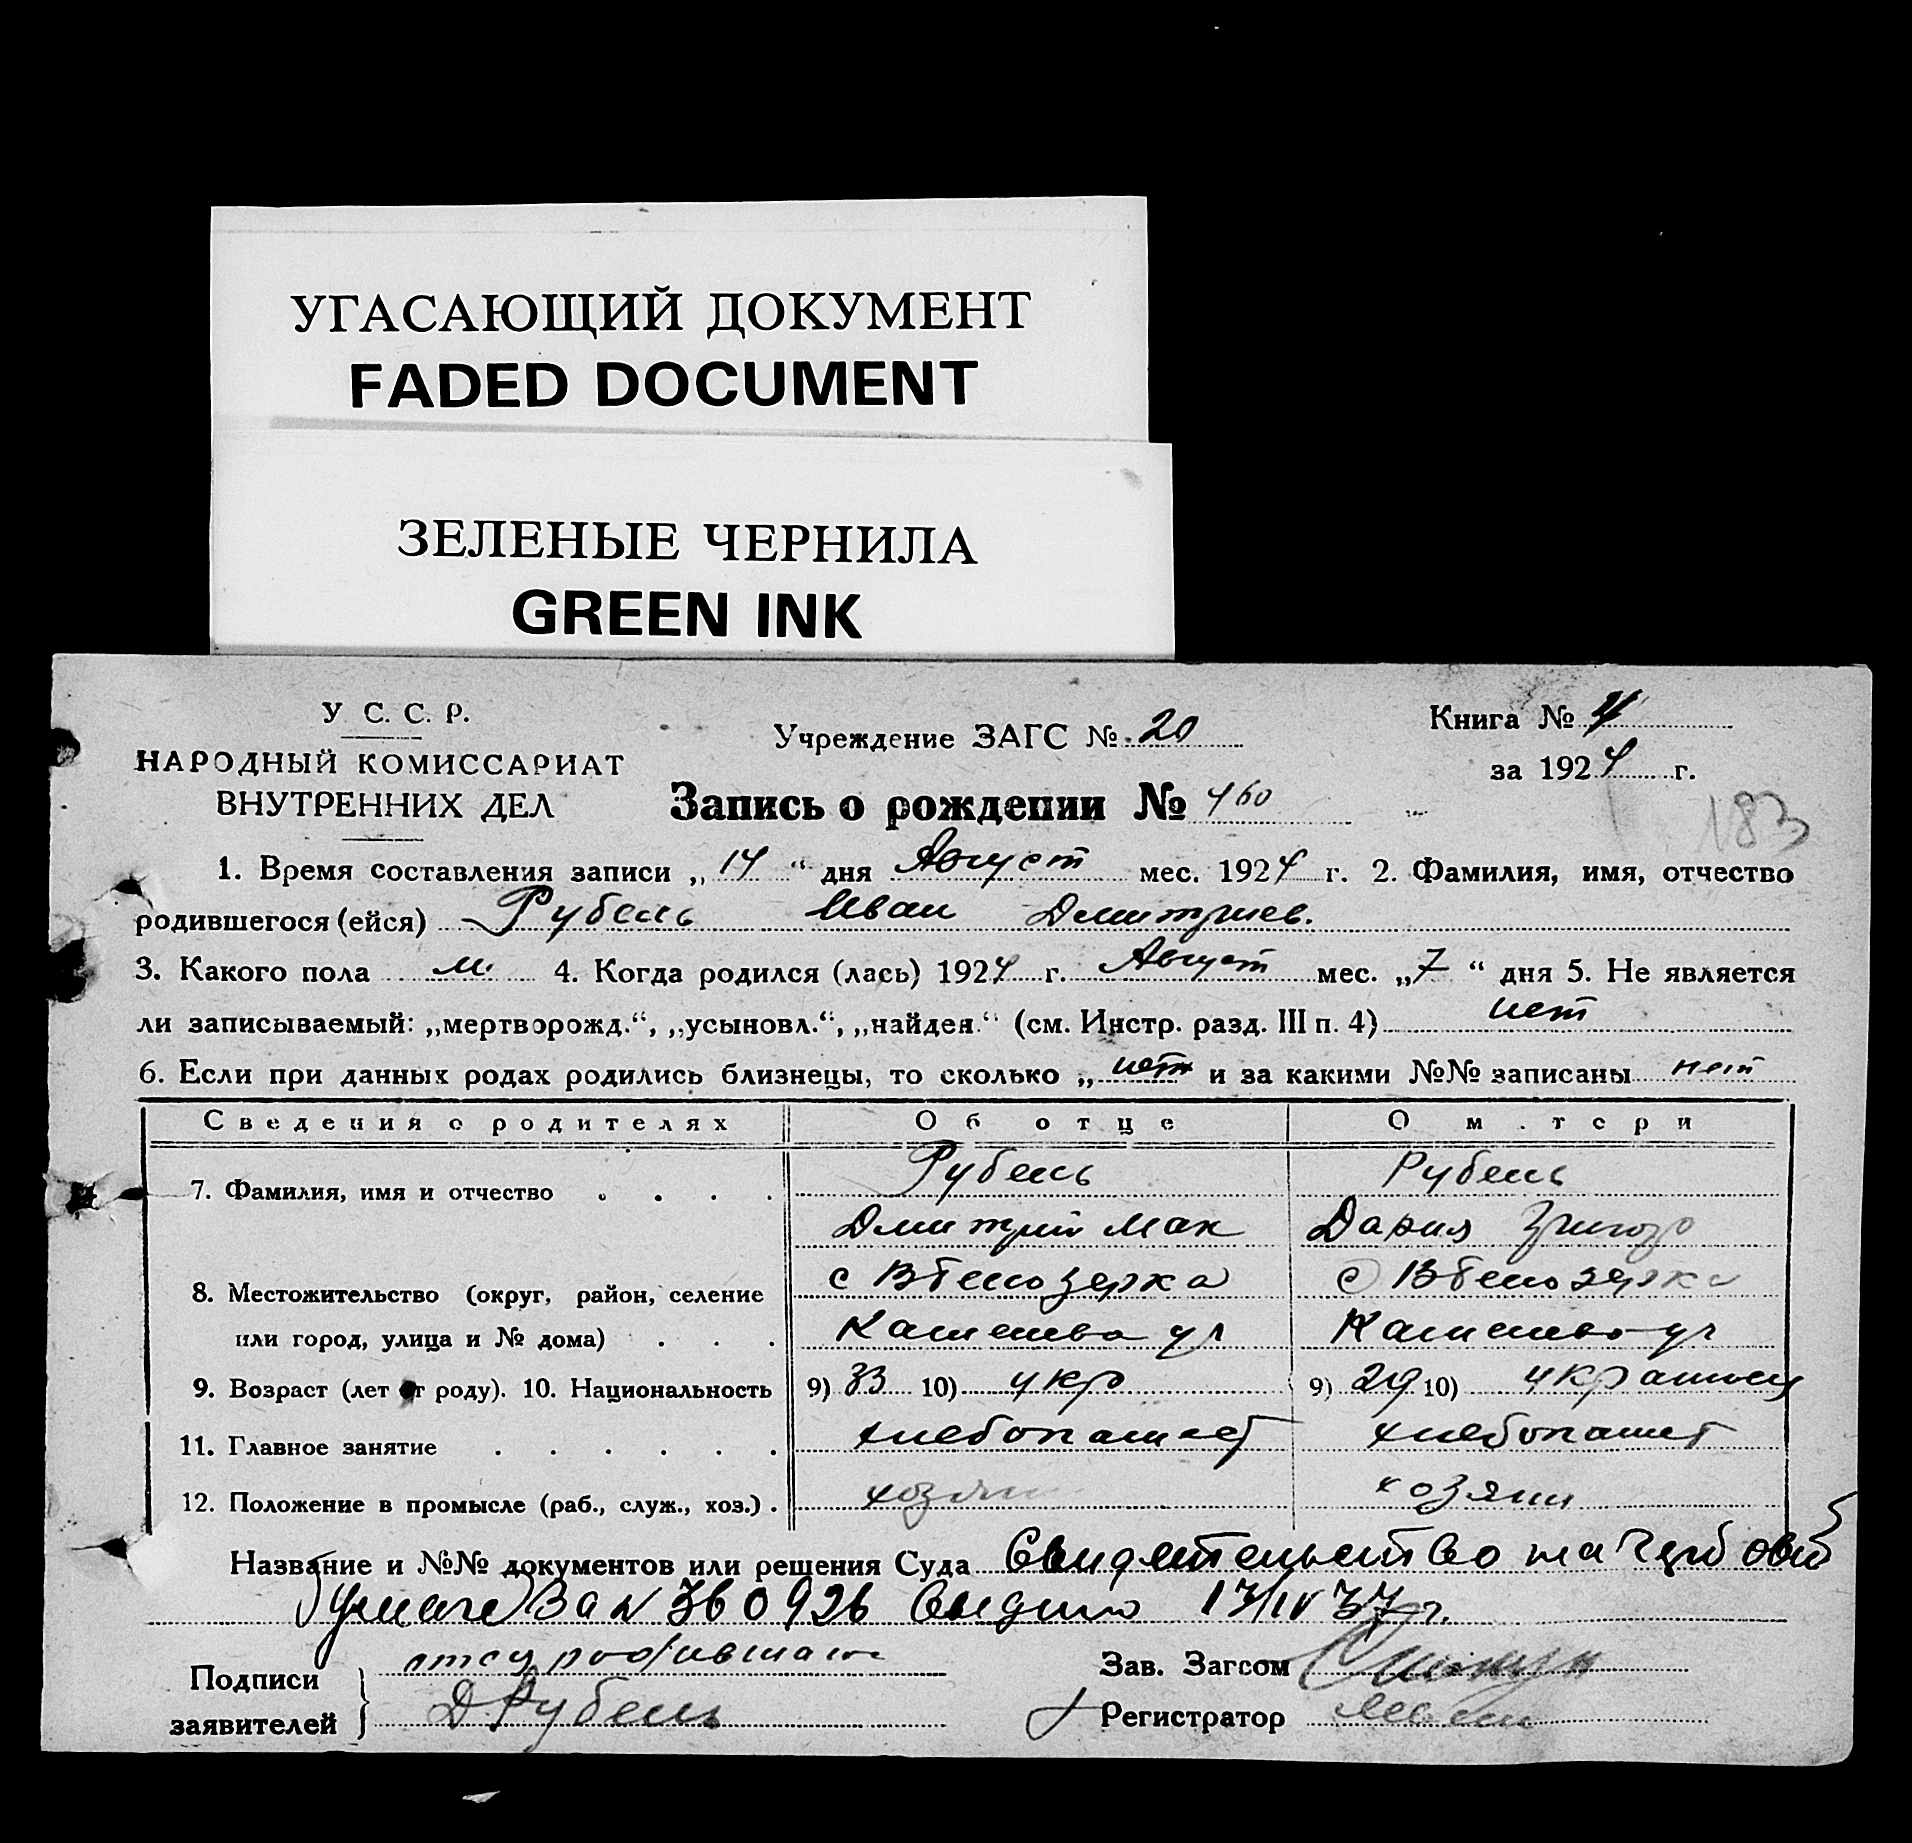 УГАСАЮЩИЙ ДОКУМЕНТ
FADED DOCUMENT
ЗЕЛЕНЫЕ ЧЕРНИЛА
GREEN INK
У С. С. Р.
НАРОДНЫЙ КОМИССАРИАТ
ВНУТРЕННИХ ДЕЛ
Учреждение ЗАГС № 20
Книга № 4
за 1924 г.
Запись о рождении № 460
183
1. Время составления записи „14“ дня Август мес. 1924 г. 2. Фамилия, имя, отчество
родившегося (ейся) Рубель Иван Дмитриев.
3. Какого пола м. 4. Когда родился (лась) 1924 г. Август мес. „7“ дня 5. Не является
ли записываемый: „мертворожд.“, „усыновл.“, „найден.“ (см. Инстр. разд. III п. 4) нет
6. Если при данных родах родились близнецы, то сколько „нет и за какими №№ записаны нет
Сведения о родителях Об отце О м.тери
7. Фамилия, имя и отчество Рубель Рубель
Дмитрий Мак Дария Григор
8. Местожительство (округ, район, селение с Белозерка с Белозерка
или город, улица и № дома) ул ул
9. Возраст (лет от роду). 10. Национальность 9) 33 10) укр 9) 29 10)
11. Главное занятие хлебопашест хлебопашест
12. Положение в промысле (раб., служ., хоз.) хозяин хозяин
Название и №№ документов или решения Суда Свидетельство на гербовой
бумаге За № 360926 13/IV 37 г.
Подписи
заявителей
отец
Д. Рубель
Зав. Загсом
Регистратор